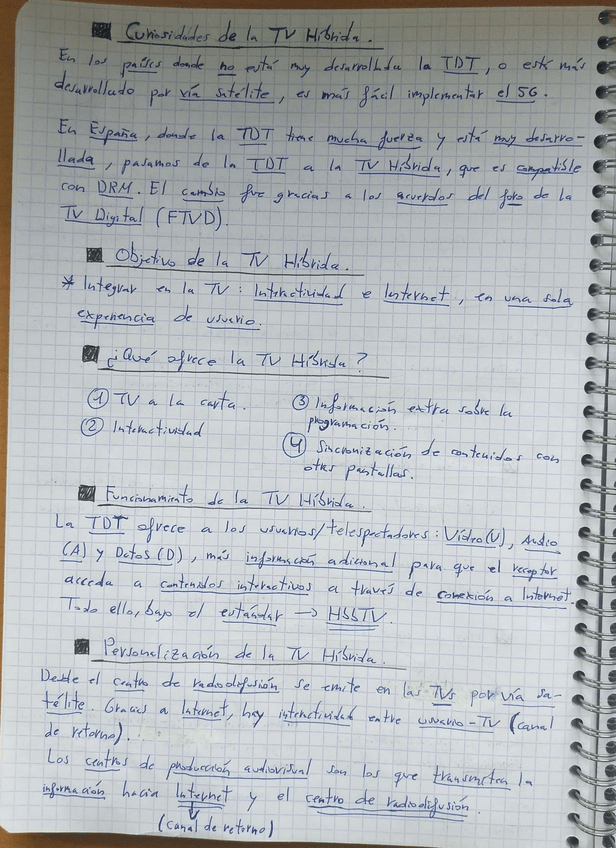 Curiosidades de la TV Híbrida.
En los países donde no está muy desarrollada la TDT, o esté más
desarrollado por vía satélite, es más fácil implementar el 5G.
En España, donde la TDT tiene mucha fuerza y está muy desarro-
llada, pasamos de la TDT a la TV Híbrida, que es compatible
con DRM. El cambio fue gracias a los acuerdos del foro de la
TV Digital (FTVD).
Objetivo de la TV Híbrida.
* Integrar en la TV: Interactividad e Internet, en una sola
experiencia de usuario.
¿Qué ofrece la TV Híbrida?
① TV a la carta.
② Interactividad
③ Información extra sobre la
programación.
④ Sincronización de contenidos con
otras pantallas.
Funcionamiento de la TV Híbrida.
La TDT ofrece a los usuarios/telespectadores: Vídeo(V), Audio
(A) y Datos(D), más información adicional para que el receptor
acceda a contenidos interactivos a través de conexión a Internet.
Todo ello, bajo el estándar → HbbTV.
Personalización de la TV Híbrida.
Desde el centro de radiodifusión se emite en las TVs por vía sa-
télite. Gracias a Internet, hay interactividad entre usuario-TV (canal
de retorno).
Los centros de producción audiovisual son los que transmiten la
información hacia Internet y el centro de radiodifusión.
(canal de retorno)